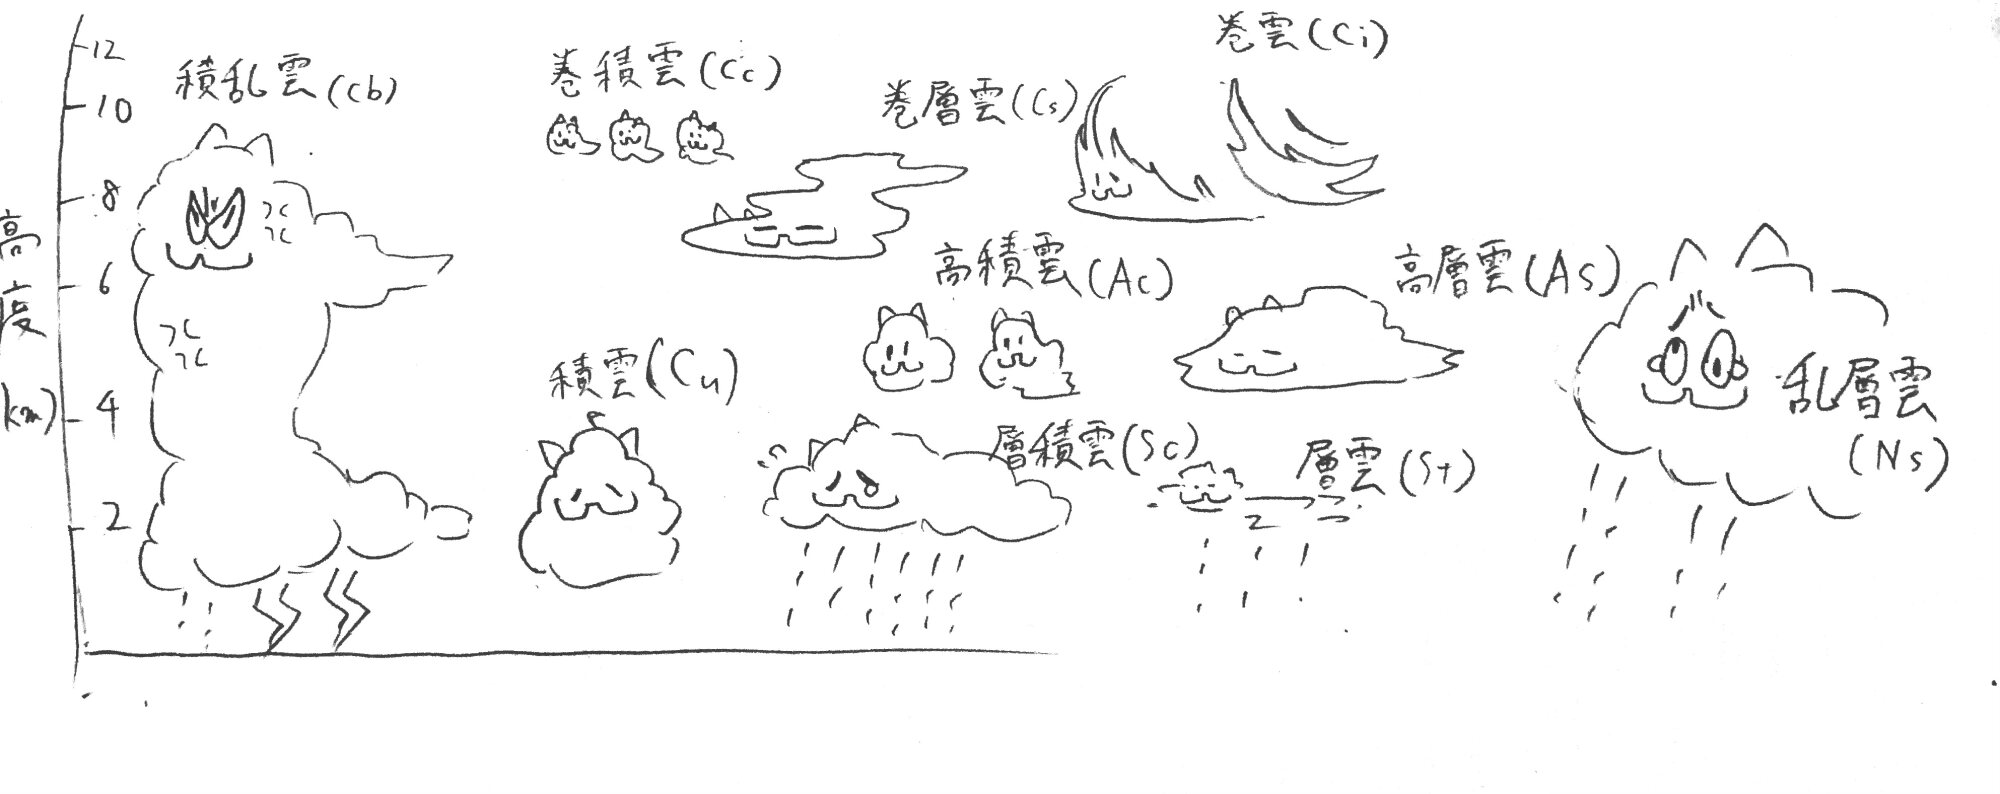 高度(km)
12
10
8
6
4
2
積乱雲(Cb)
巻積雲(Cc)
巻層雲(Cs)
巻雲(Ci)
高積雲(Ac)
高層雲(As)
積雲(Cu)
層積雲(Sc)
層雲(St)
乱層雲
(Ns)